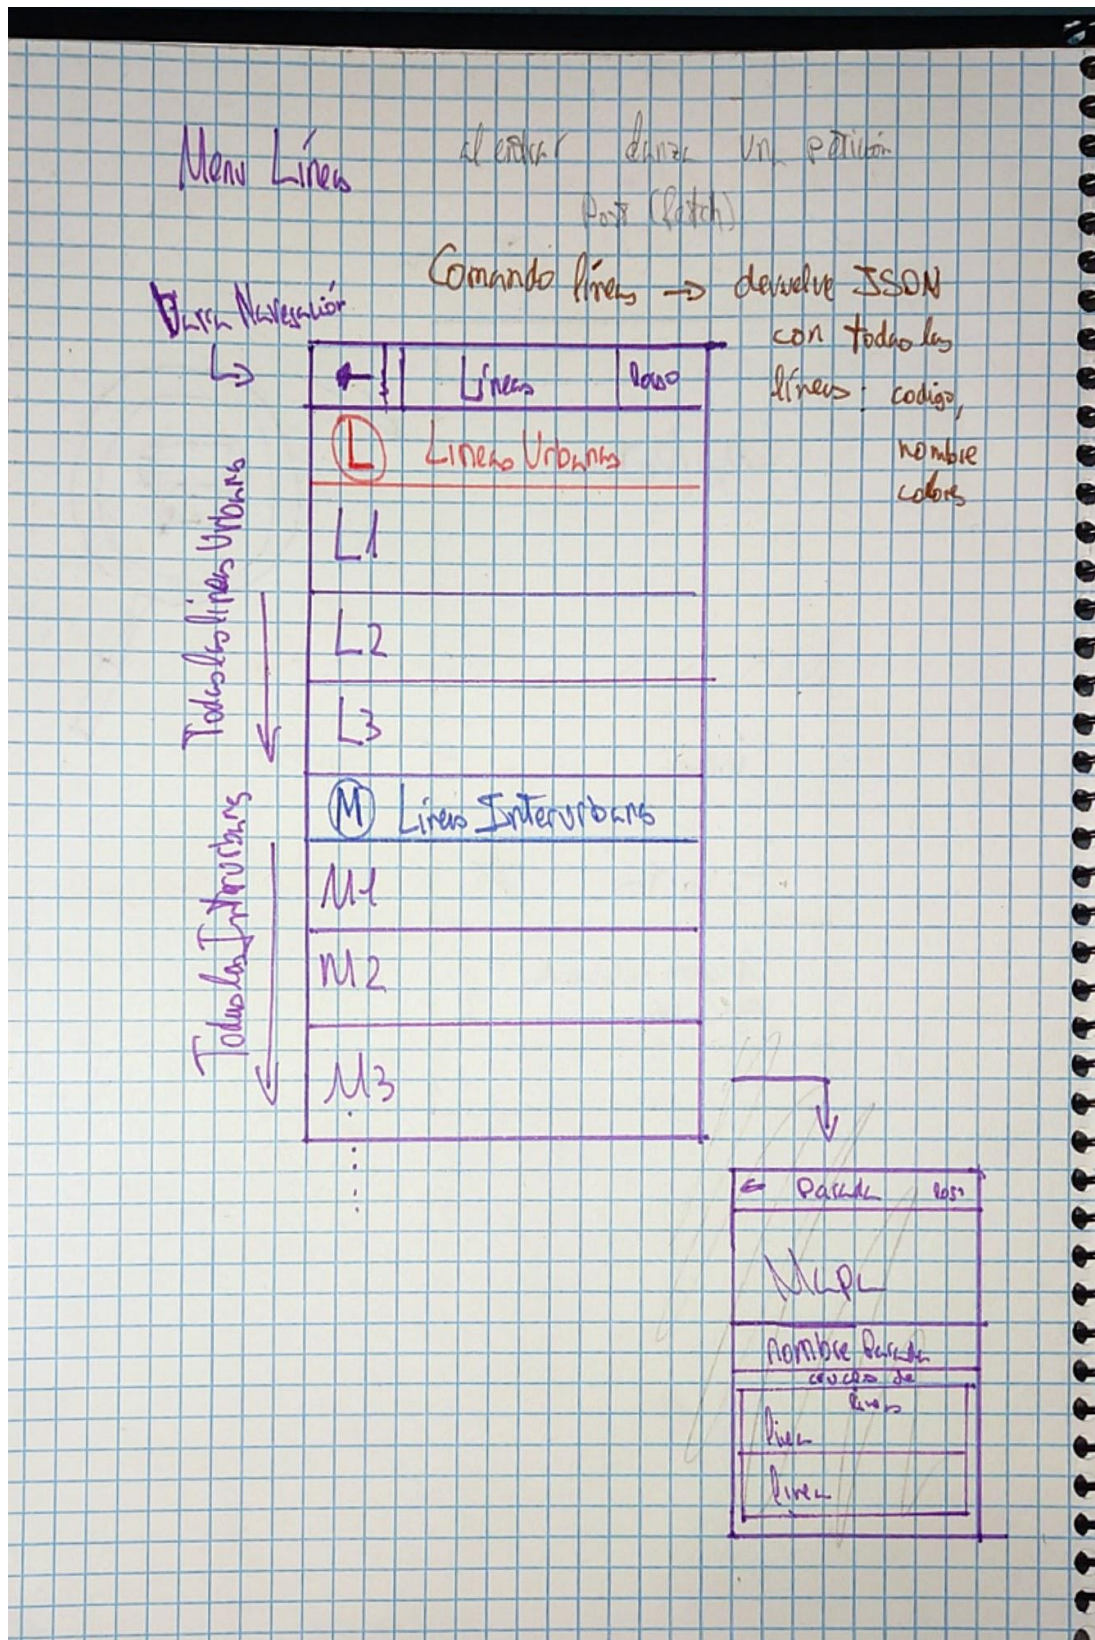 Menu Líneas
al entrar lanza un petición
Post (fetch)
Comando líneas → devuelve JSON
con todas las
líneas: codigo,
nombre
colores
Barra Navegación
← Líneas logo
L Lineas Urbanas
L1
L2
L3
Todas las líneas Urbanas
M Líneas Interurbanas
M1
M2
M3
Todas las Interurbans
← Parada logo
Mapa
nombre Parada
cruces de
líneas
línea
línea